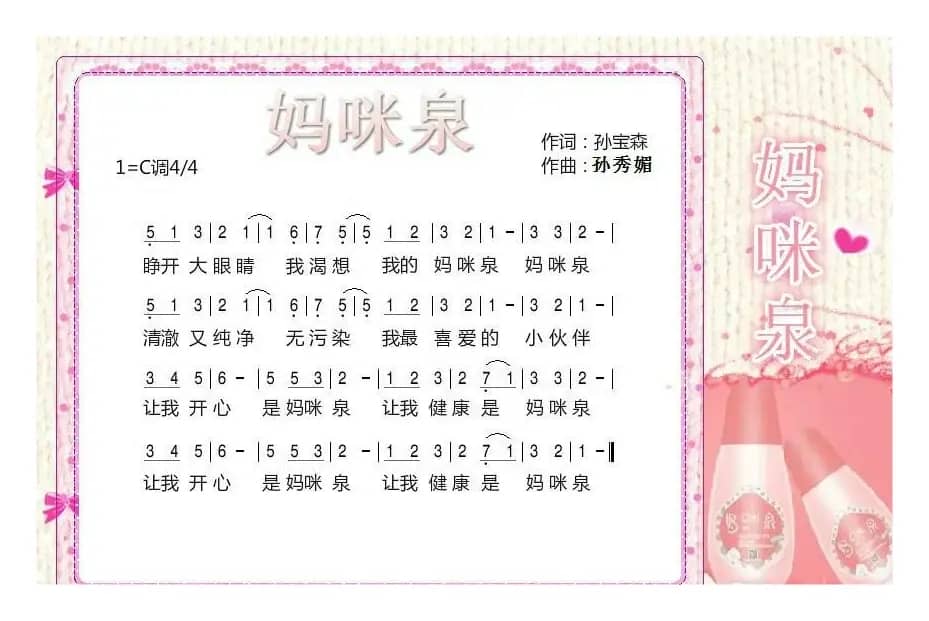 妈咪泉
作词：孙宝森
1=C调4/4
作曲：孙秀媚
5 1 3|2 1|1 6|7 5|5 1 2|3 2|1 -|3 3|2 -|
睁开 大眼睛 我渴想 我的 妈咪泉 妈咪泉
5 1 3|2 1|1 6|7 5|5 1 2|3 2|1 -|3 2|1 -|
清澈 又纯净 无污染 我最 喜爱的 小伙伴
3 4 5|6 -|5 5 3|2 -|1 2 3|2 7 1|3 3|2 -|
让我 开心 是妈咪 泉 让我 健康 是 妈咪泉
3 4 5|6 -|5 5 3|2 -|1 2 3|2 7 1|3 2|1 -‖
让我 开心 是妈咪 泉 让我 健康 是 妈咪泉
妈咪泉